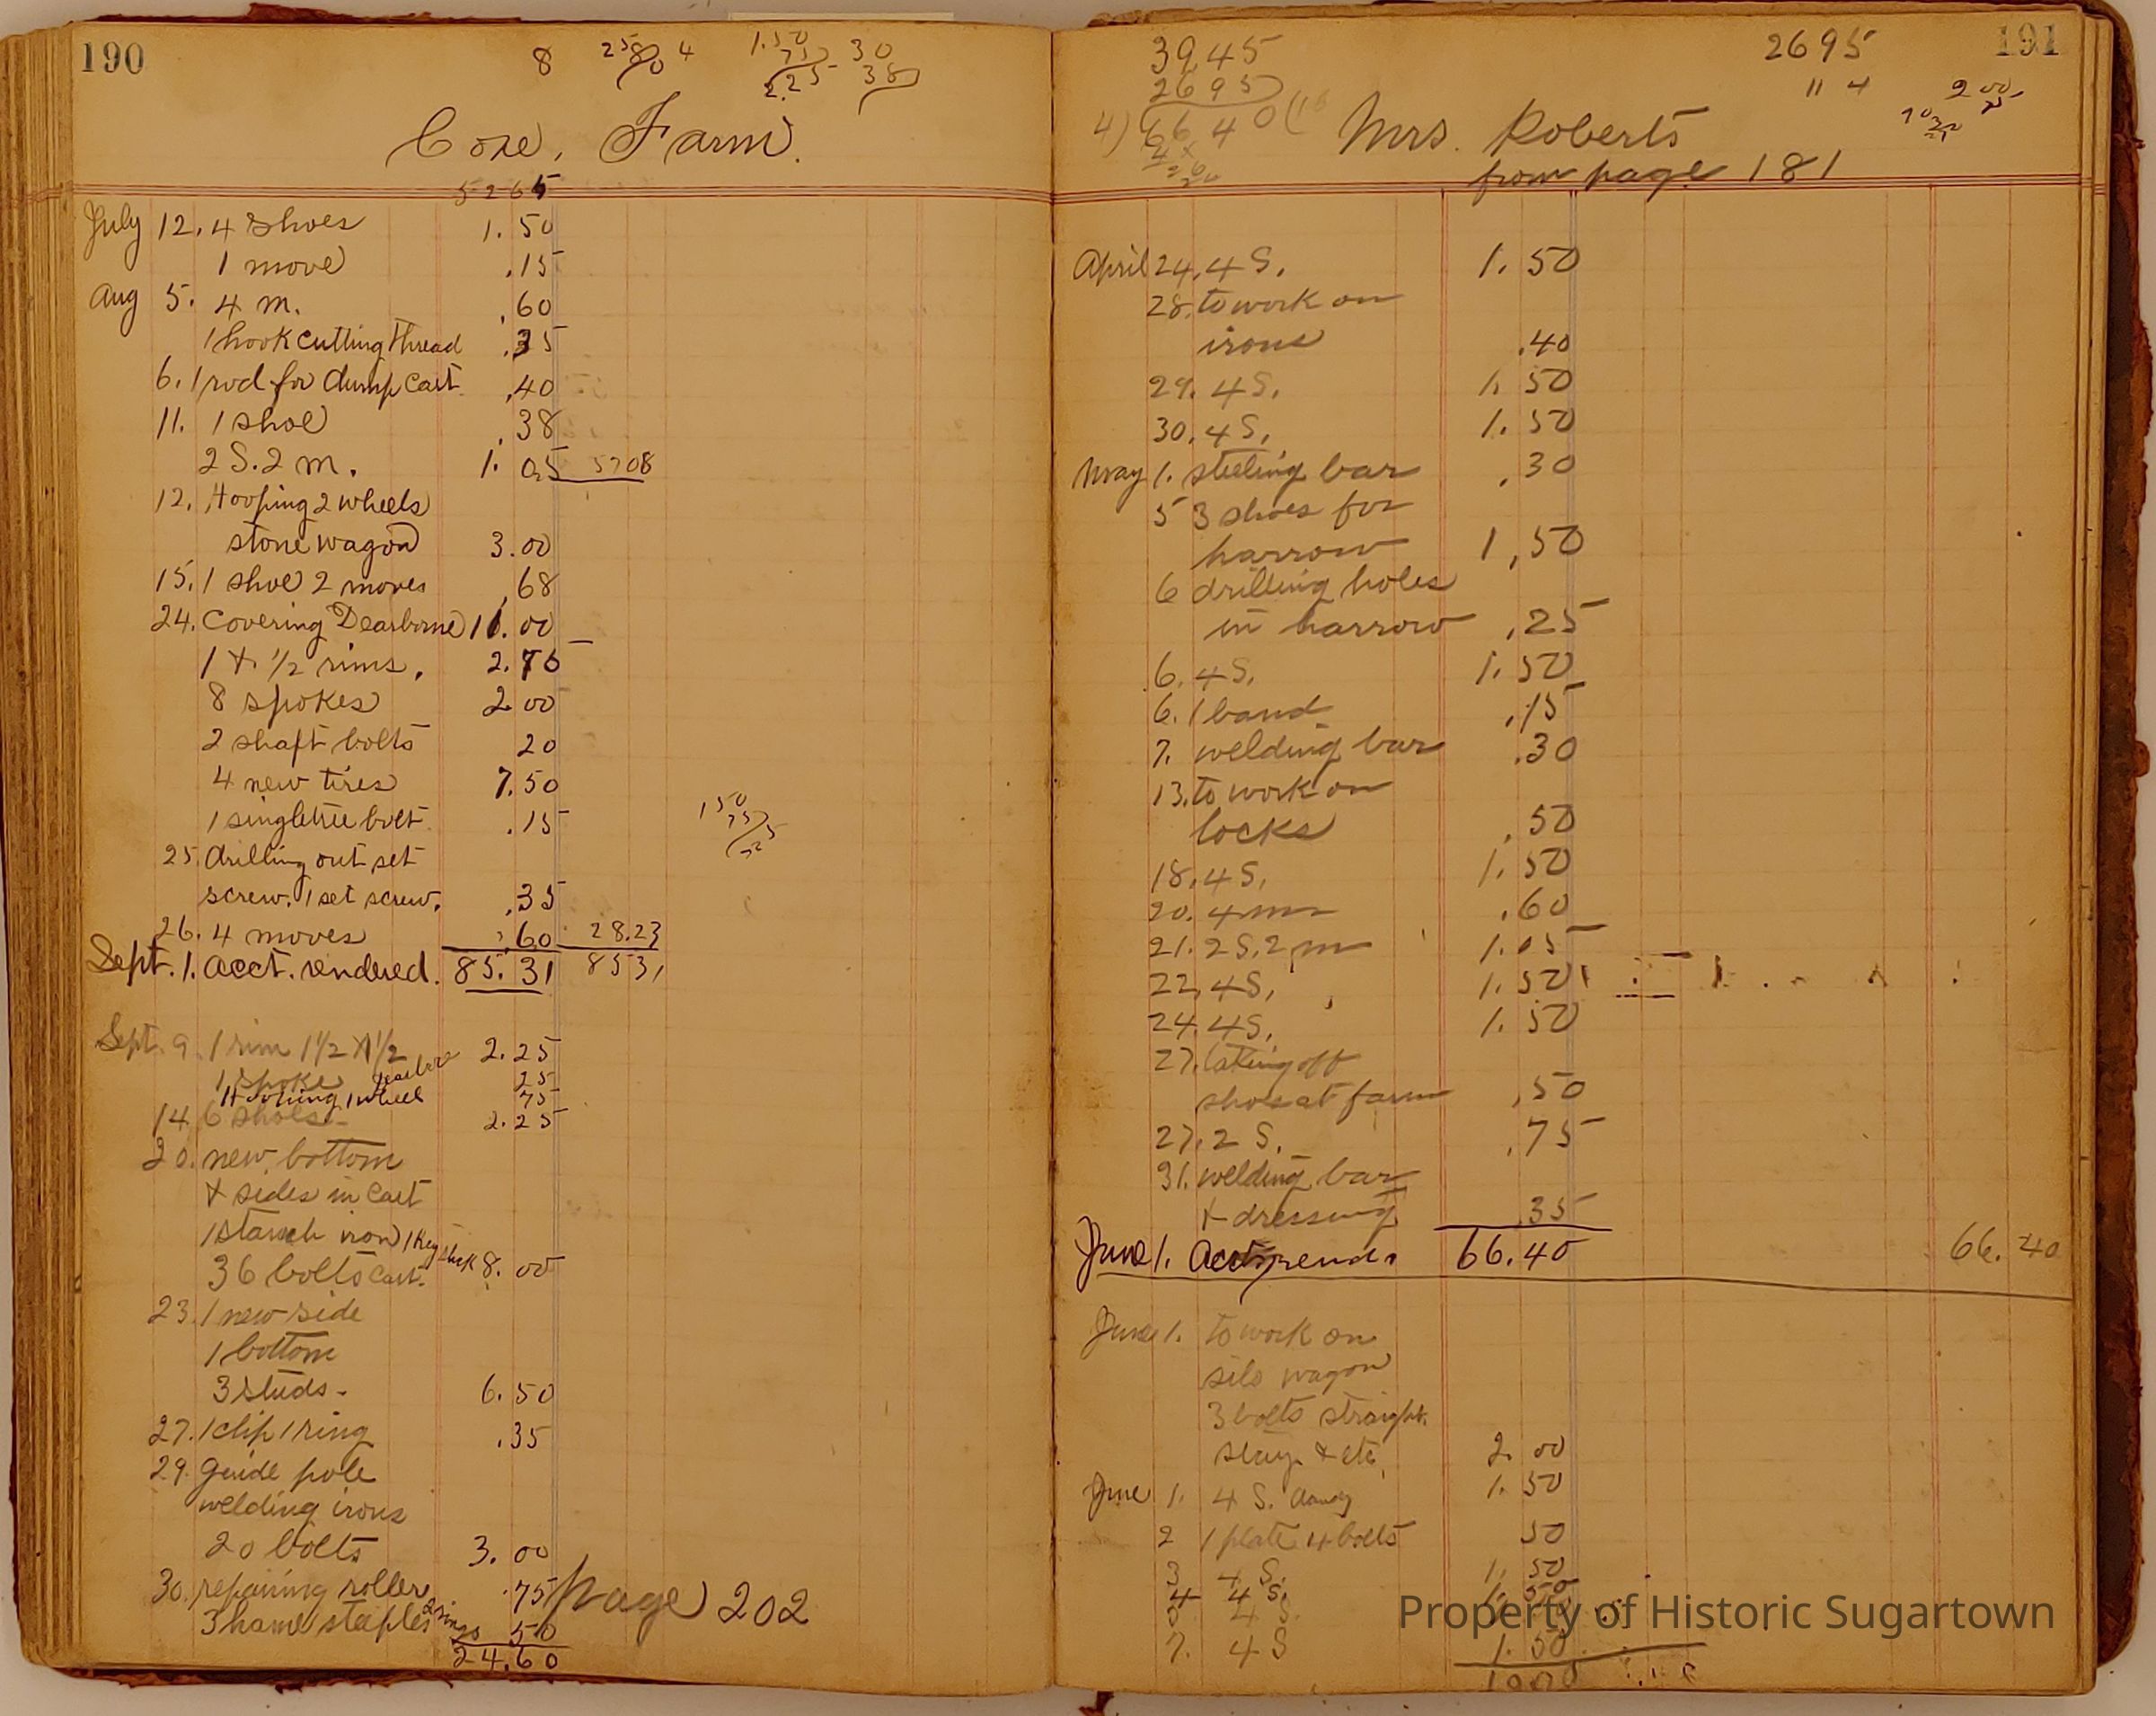 190
8 25 80 4 1.50 75 2.25 30 38
Coxe, Farm.
5265
July 12. 4 shoes 1.50
1 move .15
Aug 5. 4 m. .60
1 hook cutting thread .35
6. 1 rod for dump cart .40
11. 1 shoe .38
2 S. 2 m. 1.05 5708
12. Hooping 2 wheels
stone wagon 3.00
15. 1 shoe 2 moves .68
24. Covering Dearborne 11.00
1 + 1/2 rims. 2.
8 spokes 2 00
2 shaft bolts 20
4 new tires 7.50
1 singletree bolt .15
150
75
225
25. drilling out set
screw. 1 set screw. .35
26. 4 moves .60 28.23
Sept. 1. acct. rendered. 85.31 8531
Sept. 9. 1 rim 1 1/2 X 1 1/2 2.25
1 spoke 25
Hooping 1 wheel 75
14. 6 shoes 2.25
20. new bottom
+ sides in cart
1 staunch iron 1 Key
36 bolts cart. 8.00
23. 1 new side
1 bottom
3 studs - 6.50
27. 1 clip 1 ring .35
29. Guide pole
welding irons
20 bolts 3.00
30. repairing roller .75
3 hame staples 2 rings 50
24.60
page 202
191
3945
2695
4) 6640 (16
2695
11 4
200
Mrs. Roberts
from page 181
April 24. 4 S. 1.50
28. to work on
irons .40
29. 4 S. 1.50
30. 4 S. 1.50
May 1. steeling bar .30
5 3 shoes for
harrow 1,50
6 drilling holes
in harrow .25
6. 4 S. 1.50
6. 1 band .15
7. welding bar .30
13. to work on
locks .50
18. 4 S. 1.50
20. 4 m .60
21. 2 S. 2 m 1.05
22. 4 S. 1.50
24. 4 S. 1.50
27. taking off
shoes at farm .50
27. 2 S. .75
31. welding bar
+ dressing .35
June 1. Acct rend. 66.40 66.40
June 1. to work on
silo wagon
3 bolts straight.
stay + etc. 2.00
June 1. 4 S. dandy 1.50
2 1 plate 4 bolts 50
3 4 S. 1.50
4 4 S. 1.50
4 S.
7. 4 S 1.50
Property of Historic Sugartown